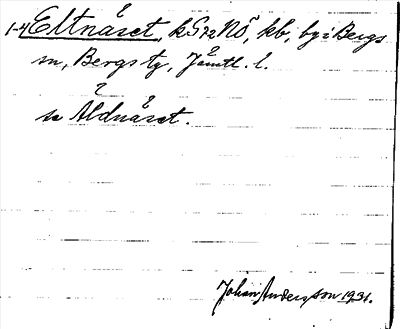 1-4 Eltnäset, k G 72 NÖ, kb, by i Bergs
sn, Bergs tg, Jämtl. l.
se Äldnäset.
Johan Anderzson 1931.